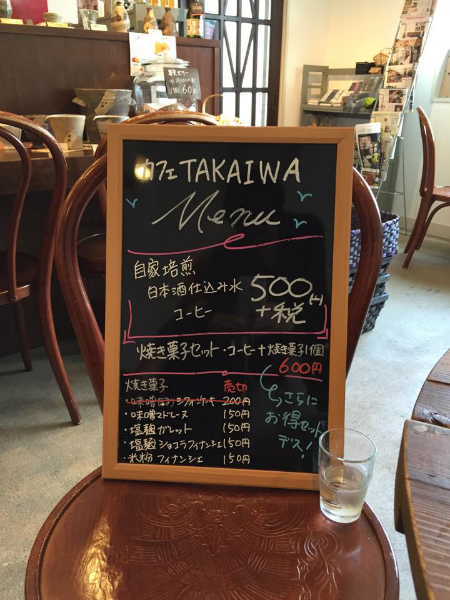 カフェ TAKAIWA
Menu
自家焙煎
日本酒仕込み水
コーヒー
500円
+税
焼き菓子セット・コーヒー+焼き菓子1個
600円
焼き菓子 売切
200円
・味噌マドレーヌ 150円
・塩麹ガレット 150円
・塩麹ショコラフィナンシェ 150円
・米粉フィナンシェ 150円
さらに
お得セット
デス!
60円